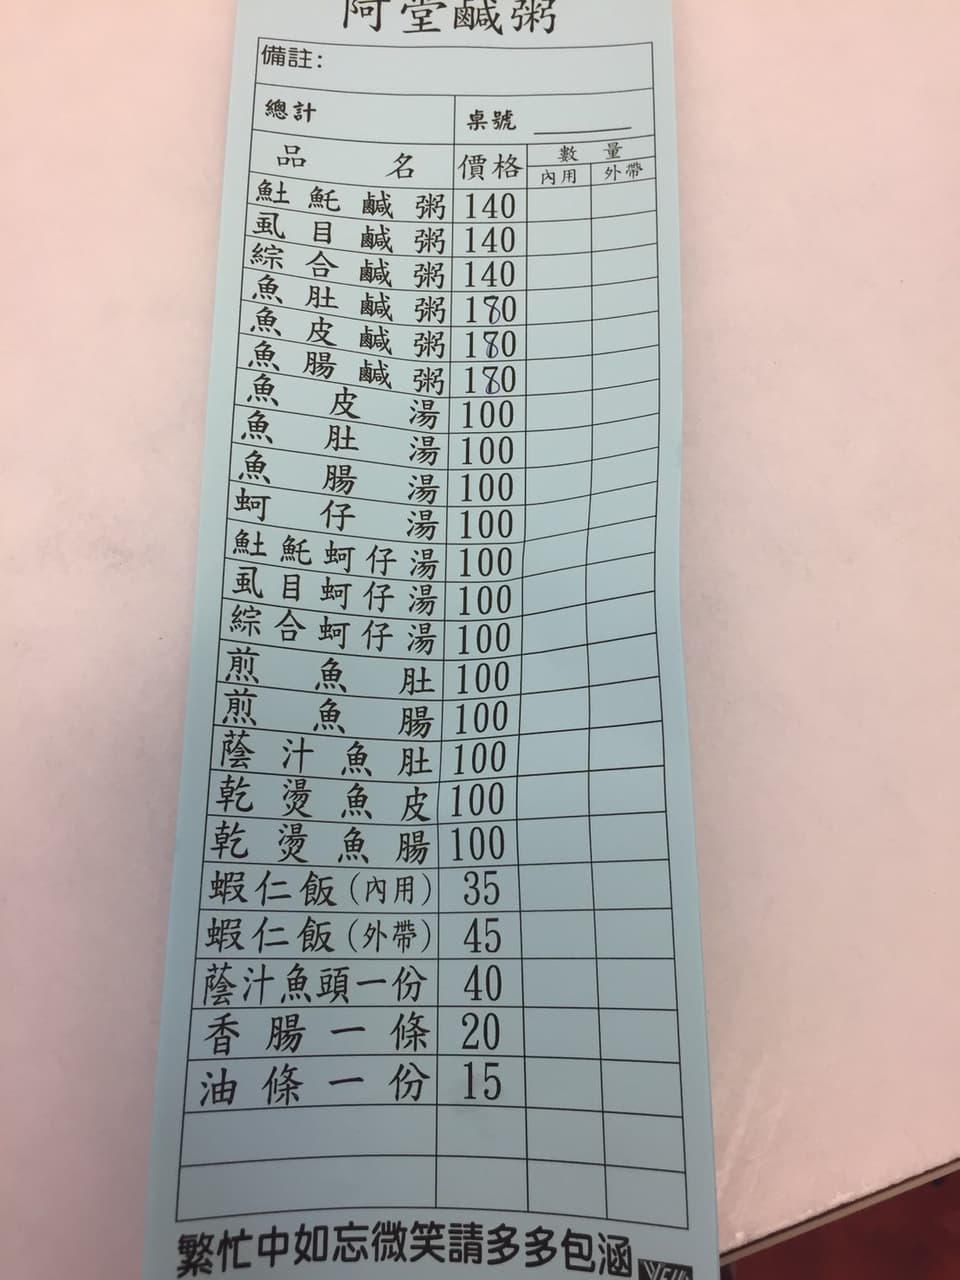 阿堂鹹粥
備註:
總計 桌號
品名 價格 數量
內用 外帶
𩵚魠鹹粥 140
虱目鹹粥 140
綜合鹹粥 140
魚肚鹹粥 180
魚皮鹹粥 180
魚腸鹹粥 180
魚皮湯 100
魚肚湯 100
魚腸湯 100
蚵仔湯 100
𩵚魠蚵仔湯 100
虱目蚵仔湯 100
綜合蚵仔湯 100
煎魚肚 100
煎魚腸 100
蔭汁魚肚 100
乾燙魚皮 100
乾燙魚腸 100
蝦仁飯(內用) 35
蝦仁飯(外帶) 45
蔭汁魚頭一份 40
香腸一條 20
油條一份 15
繁忙中如忘微笑請多多包涵